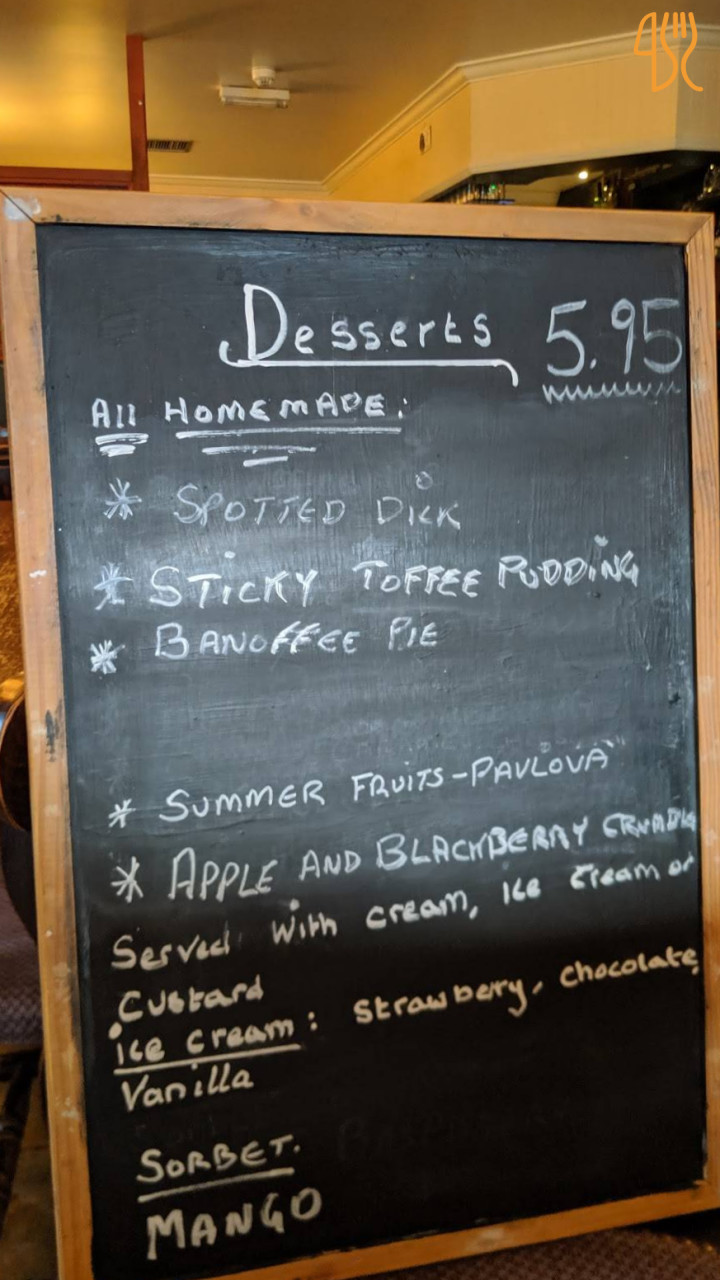 Desserts 5.95
All HOMEMADE:
* SPOTTED DICK
* STICKY TOFFEE PUDDING
* BANOFFEE PIE
* SUMMER FRUITS-PAVLOVA
* APPLE AND BLACKBERRY CRUMBLE
Served with cream, ice cream or
Custard
ice cream: strawbery, chocolate,
Vanilla
SORBET.
MANGO